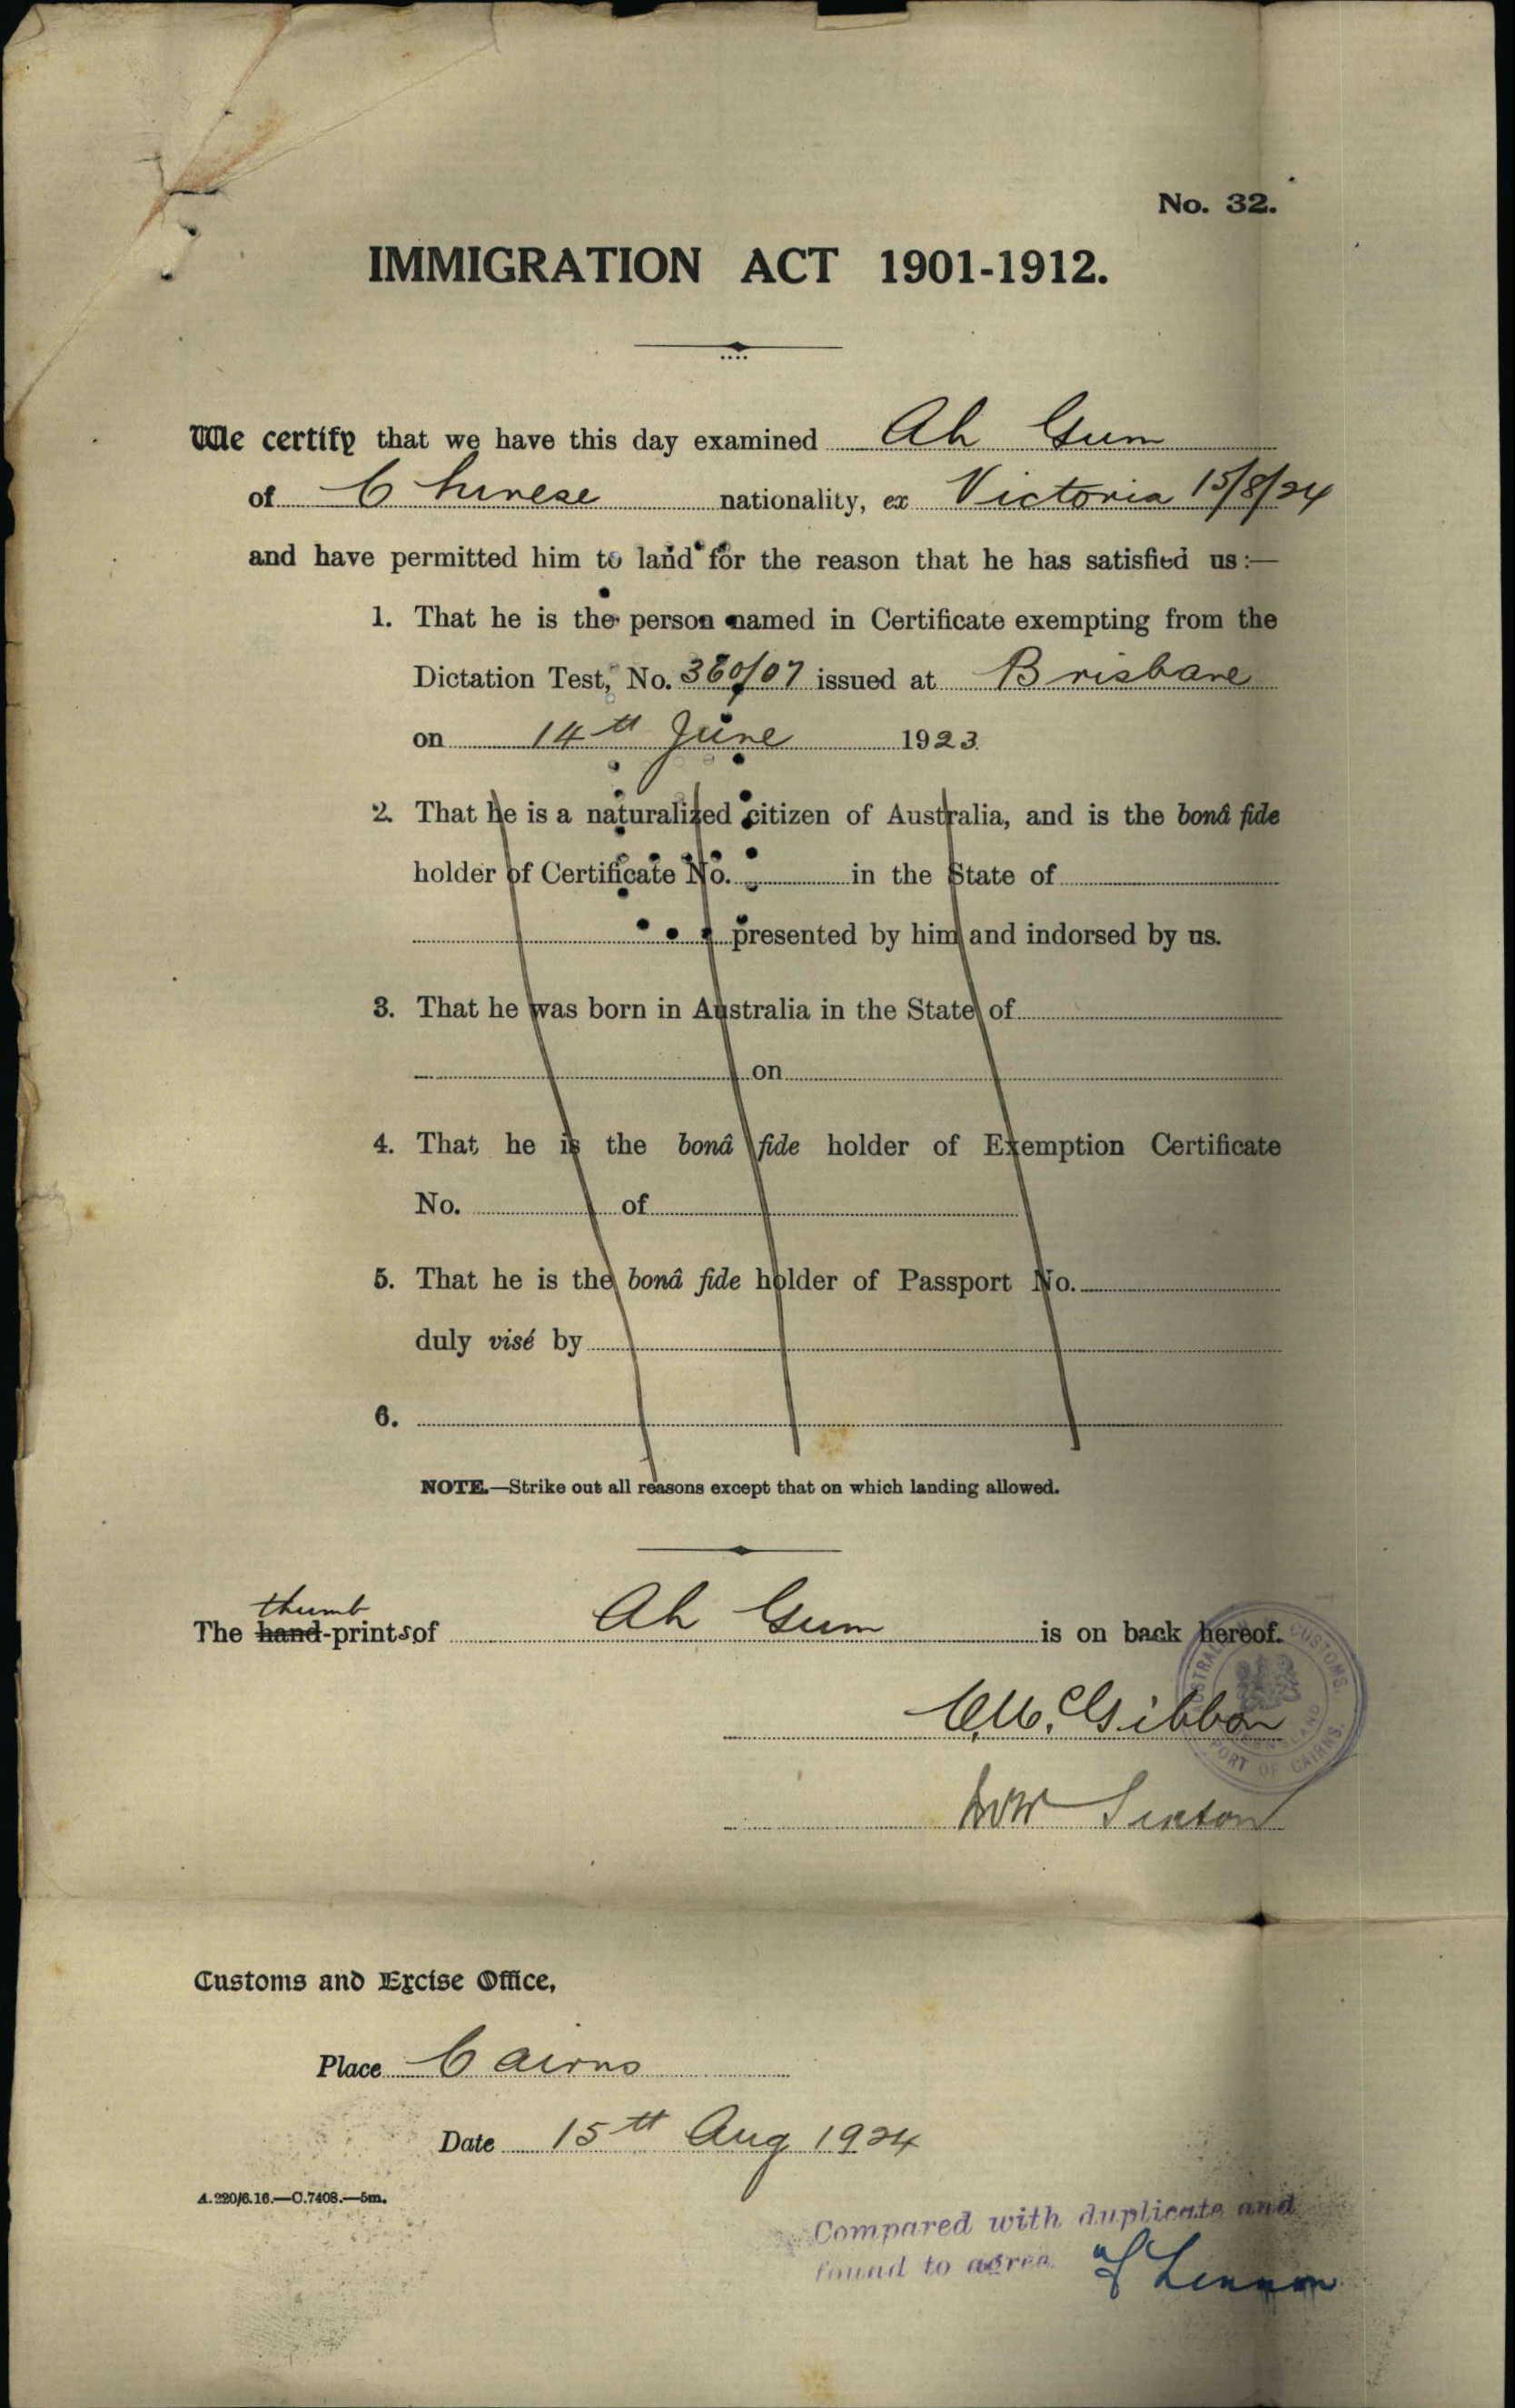 No. 32.
IMMIGRATION ACT 1901-1912.
We certify that we have this day examined Ah Gum
of Chinese nationality, ex Victoria 15/8/24
and have permitted him to land for the reason that he has satisfied us:—
1. That he is the person named in Certificate exempting from the
Dictation Test, No. 360/07 issued at Brisbane
on 14th June 1923
2. That he is a naturalized citizen of Australia, and is the bonâ fide
holder of Certificate No. in the State of
presented by him and indorsed by us.
3. That he was born in Australia in the State of
on
4. That he is the bonâ fide holder of Exemption Certificate
No. of
5. That he is the bonâ fide holder of Passport No.
duly visé by
6.
NOTE.—Strike out all reasons except that on which landing allowed.
thumb
The hand-prints of Ah Gum is on back hereof.
Gibbon
AUSTRALIAN CUSTOMS. QUEENSLAND PORT OF CAIRNS.
Sexton
Customs and Excise Office,
Place Cairns
Date 15th Aug 1924
A.220/6.16.—C.7408.—5m.
Compared with duplicate and
found to agree Lennon